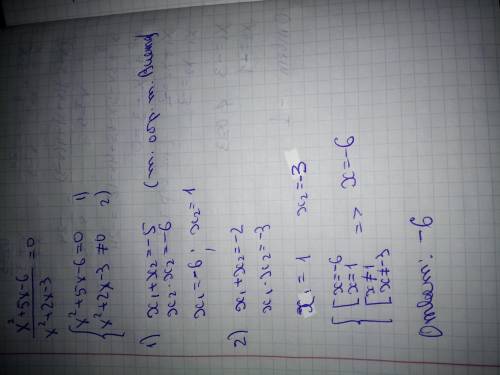 x²+5x-6 / x²+2x-3 = 0
{ x²+5x-6=0 1)
{ x²+2x-3≠0 2)
1) x₁+x₂=-5 (т. обр. т. Виета)
x₂·x₂=-6
x₁=-6; x₂=1
2) x₁+x₂=-2
x₁·x₂=-3
x₁=1 x₂=-3
{ [ x=-6
[ x=1 => x=-6
[ x≠1
[ x≠-3
Ответ: -6